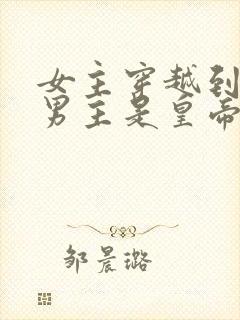 女主穿越到
男主是皇帝
邹晨璐